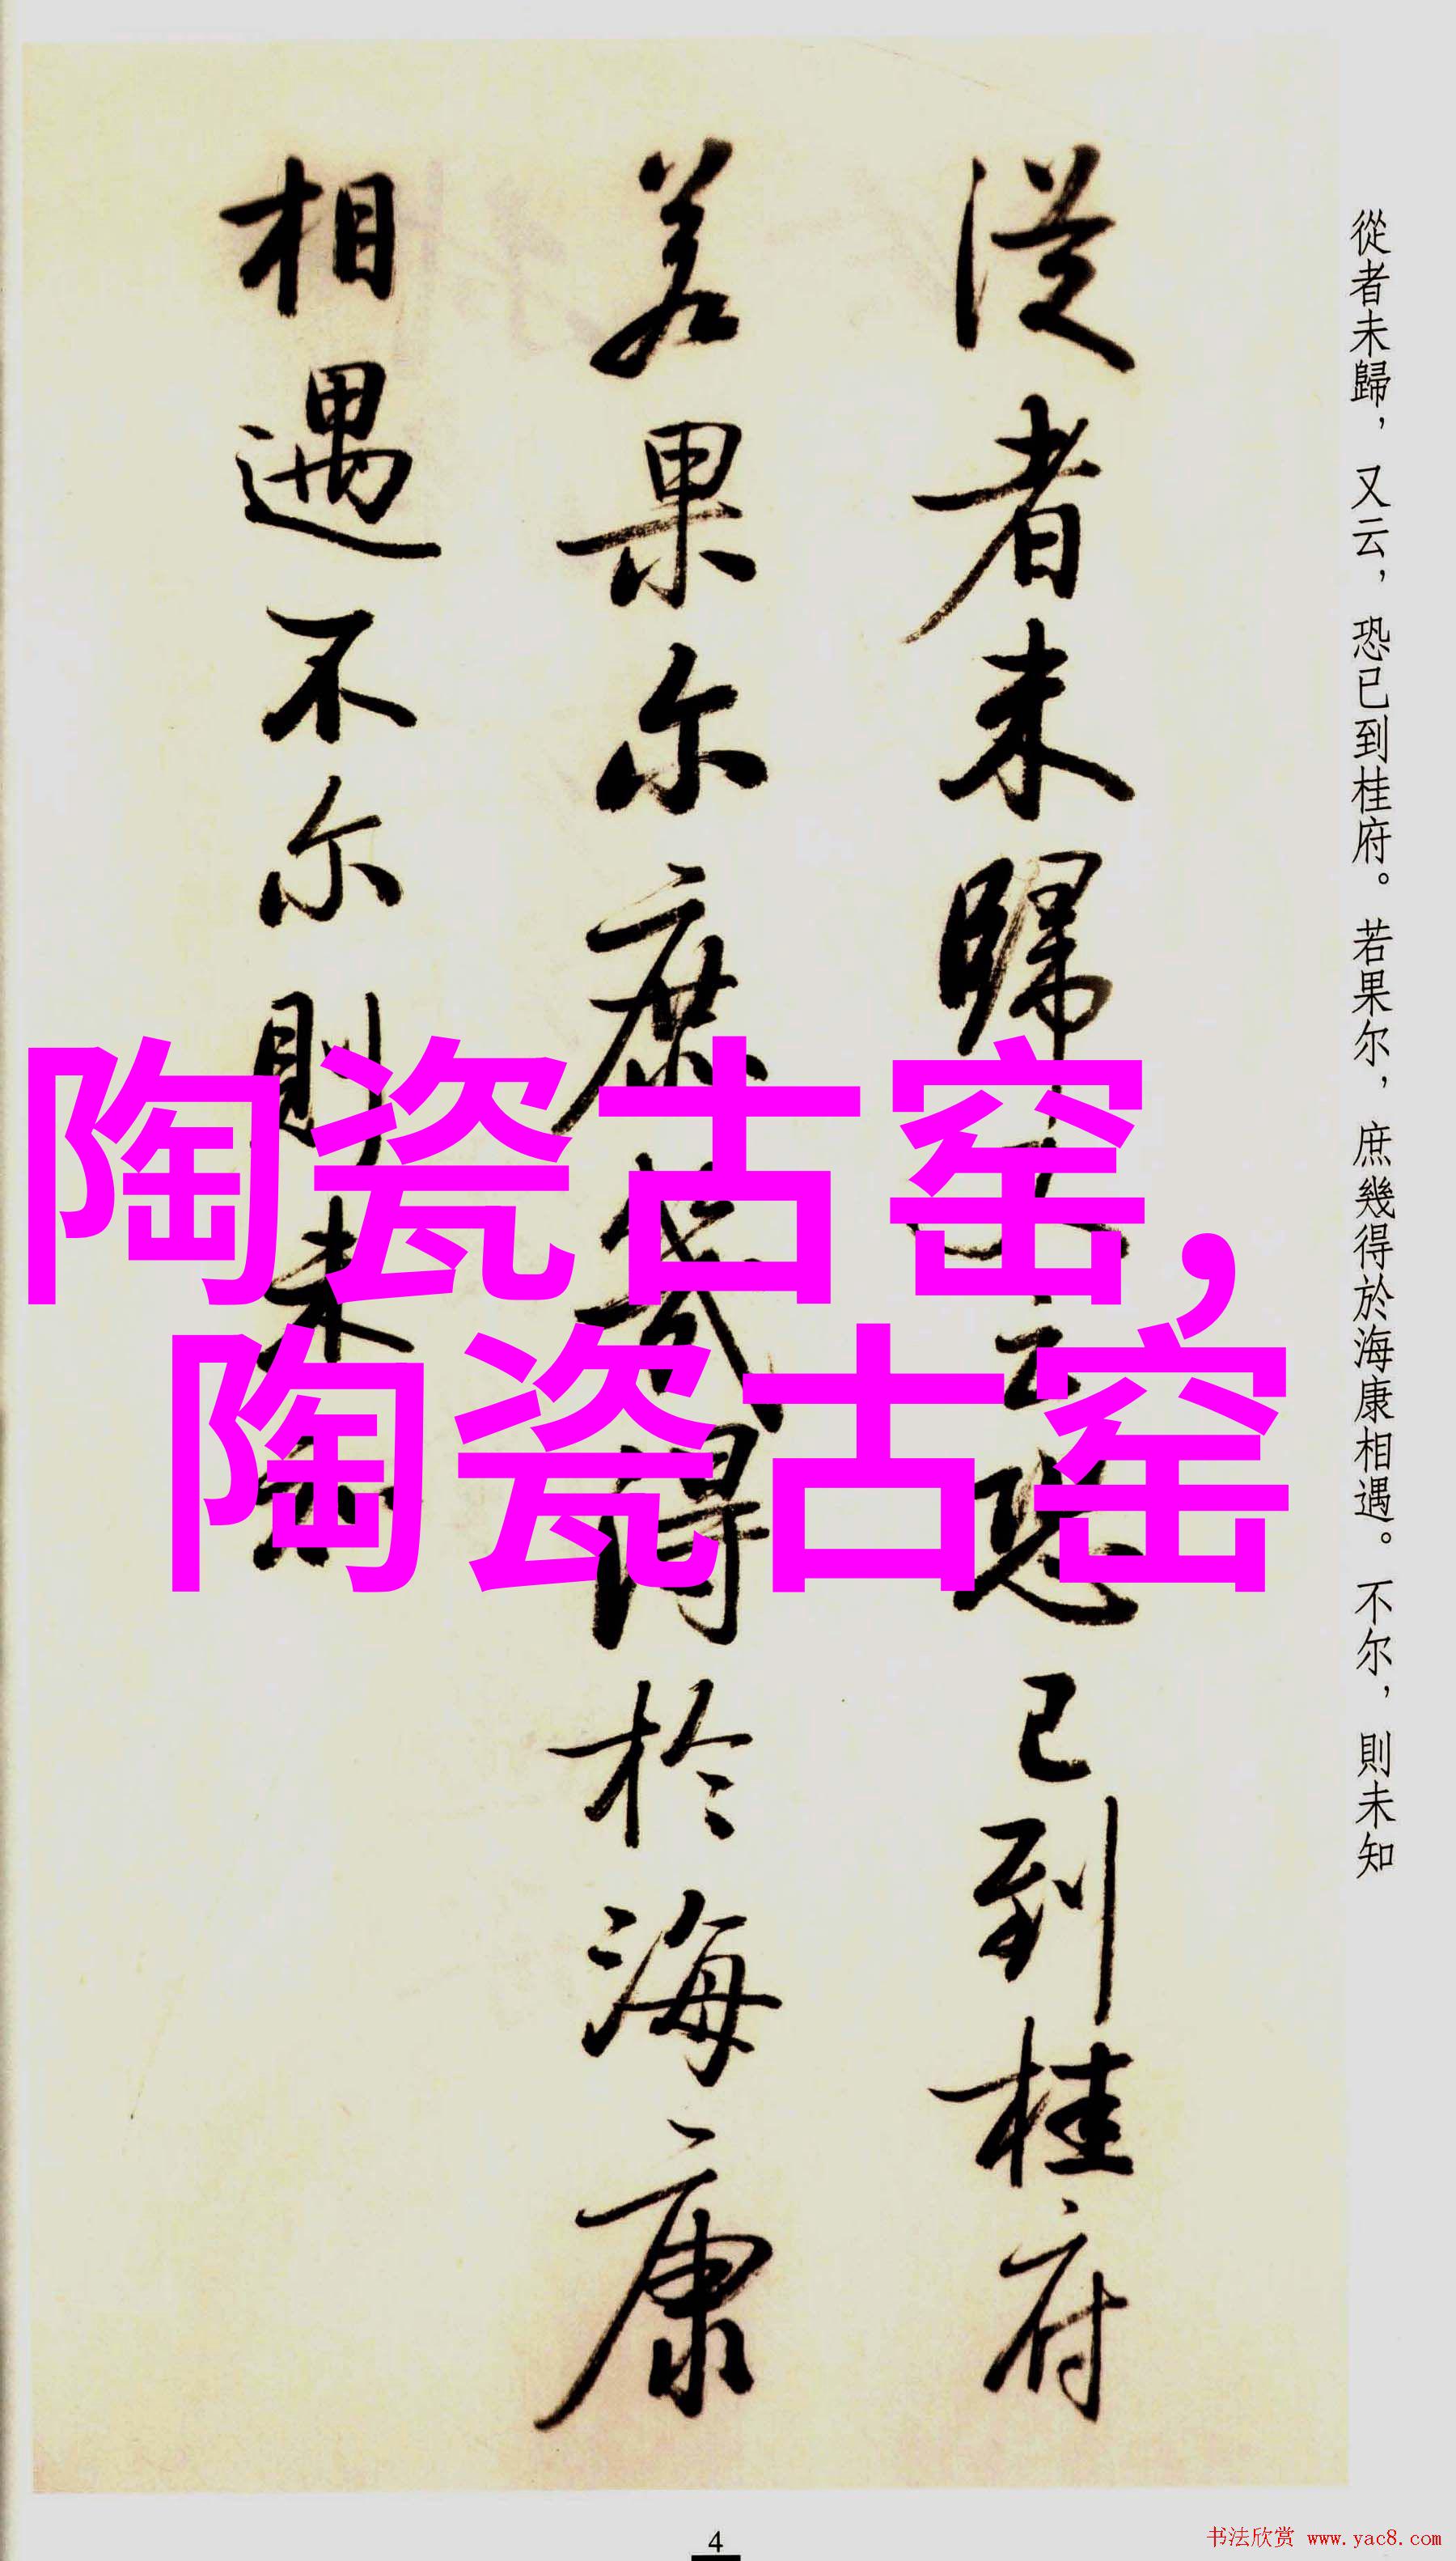 從者未歸，又云，恐已到桂府。若果尔，庶幾得於海康相遇。不尔，則未知
從者未歸又云恐已到桂府
若果尔庶幾得於海康
相遇不尔則未知
陶瓷古窑，
陶瓷古窑
4
书法欣赏 www.yac8.com